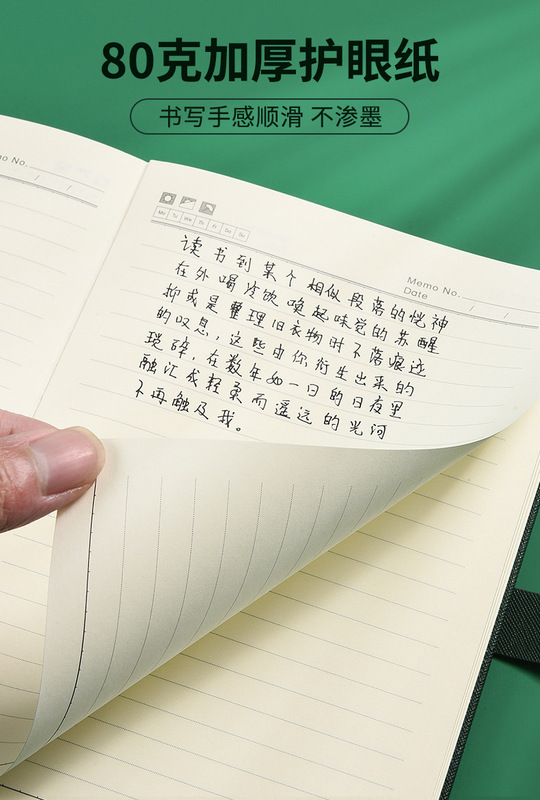 80克加厚护眼纸
书写手感顺滑 不渗墨
mo No.
/ /
Mo Tu We Th Fr Sa Su
Memo No.
Date / /
读书到某个相似段落的恍神
在外喝冷饮唤起味觉的苏醒
抑或是整理旧衣物时不落痕迹
的叹息，这些由你衍生出来的
琐碎，在数年如一日的日夜里
融汇成轻柬而遥远的光河
不再触及我。